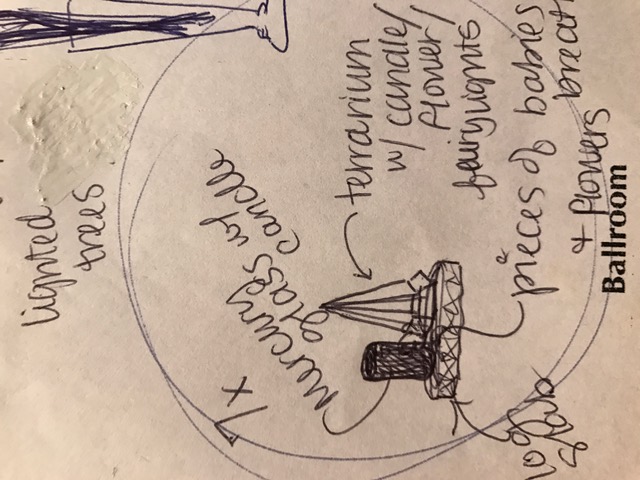 Lighted
trees
7x
mercury
glass w/
candle
terrarium
w/ candle/
flower/
fairylights
pieces of babies
breath
+ flowers
log
slab
Ballroom